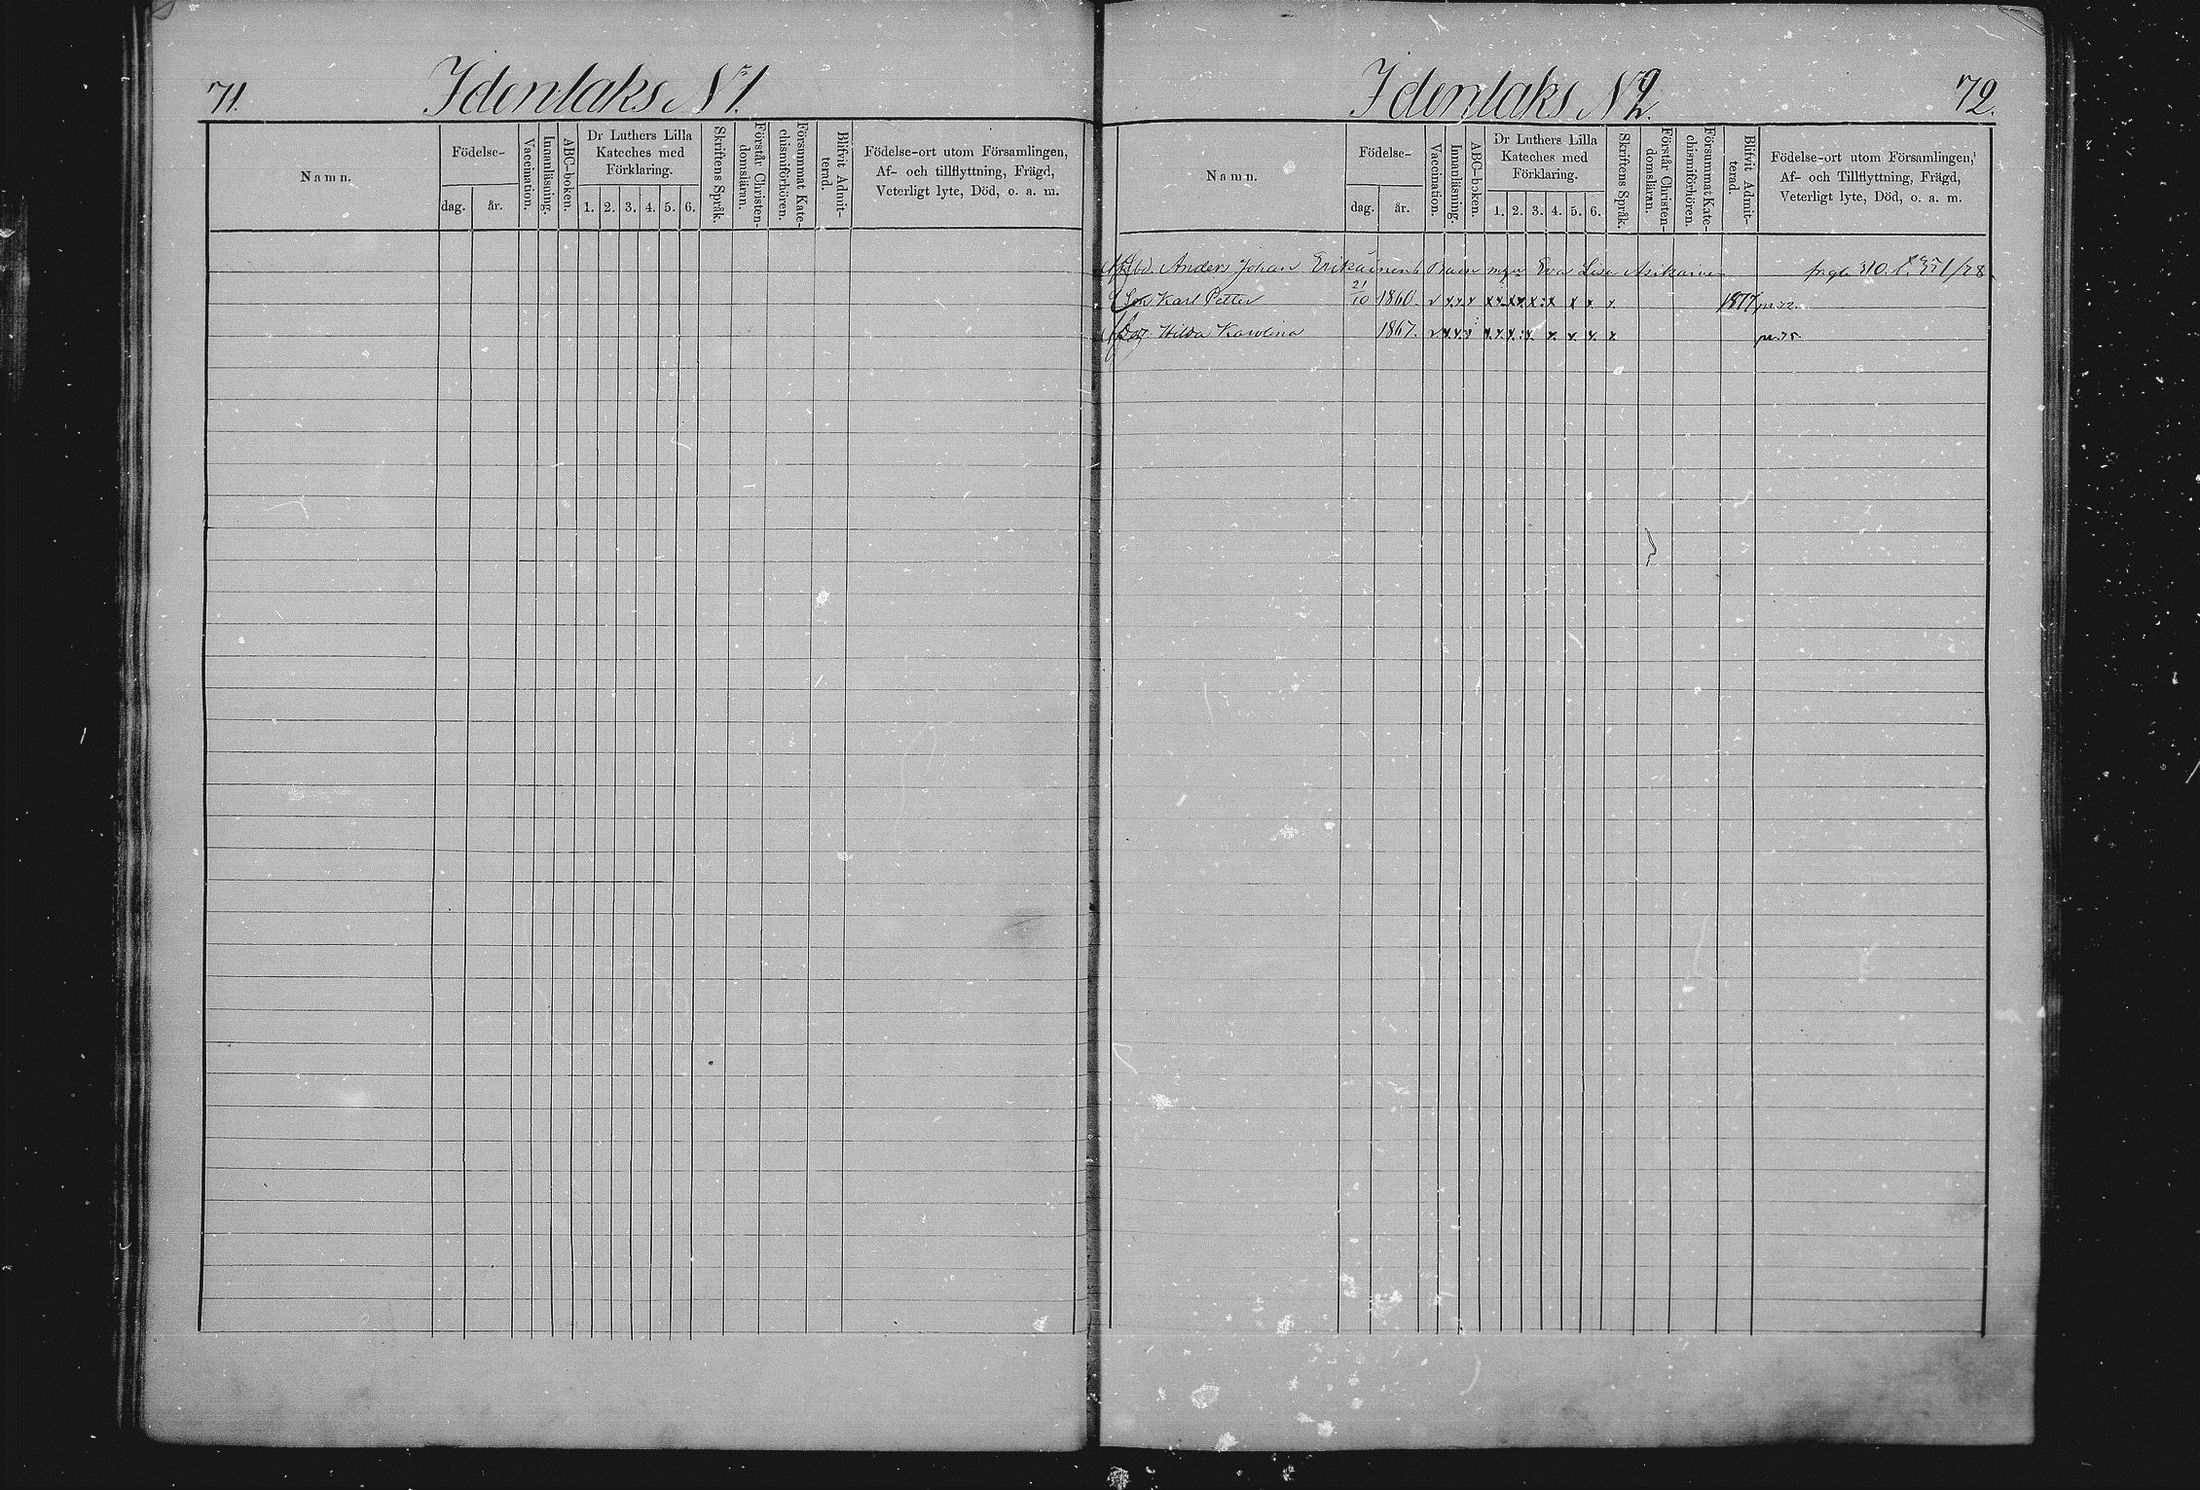 71.
Idenlaks N:1.
Namn.
Födelse-
dag.
år.
Vaccination.
Innanläsning.
ABC-boken.
Dr Luthers Lilla
Kateches med
Förklaring.
1. 2. 3. 4. 5. 6.
Skriftens Språk.
Förstår Christen-
domsläran.
Försummat Kate-
chismiförhören.
Blifvit Admit-
terad.
Födelse-ort utom Församlingen,
Af- och tillflyttning, Frägd,
Veterligt lyte, Död, o. a. m.
Idenlaks N:2.
72.
Namn.
Födelse-
dag.
år.
Vaccination.
Innanläsning.
ABC-boken.
Dr Luthers Lilla
Kateches med
Förklaring.
1. 2. 3. 4. 5. 6.
Skriftens Språk.
Förstår Christen-
domsläran.
Försummat Kate-
chismiförhören.
Blifvit Admit-
terad.
Födelse-ort utom Församlingen,
Af- och Tillflyttning, Frägd,
Veterligt lyte, Död, o. a. m.
Anders Johan Erikäinens Barn Eva Lisa
Son Karl Petter 21/10 1860. v x x x x x x x x x x x 1877
Dog. Hilda Karolina 1867. v x x x x x x x x x x